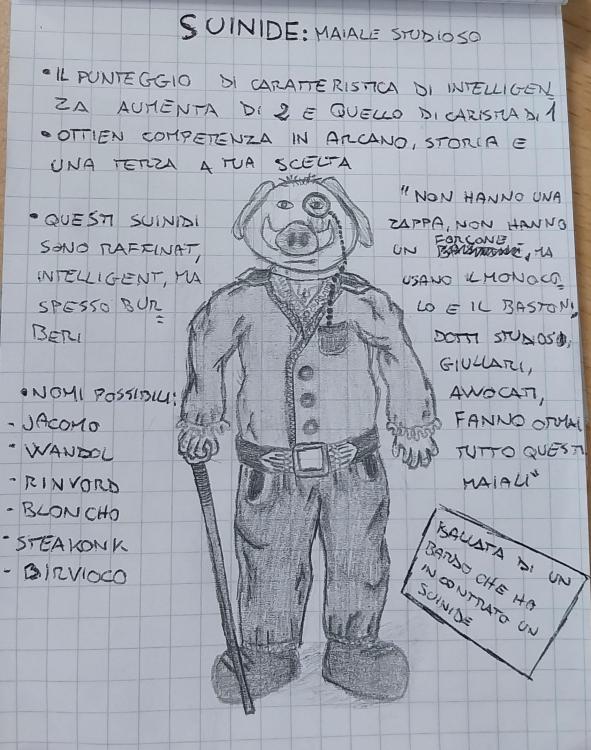 SUINIDE: MAIALE STUDIOSO
• IL PUNTEGGIO DI CARATTERISTICA DI INTELLIGEN
ZA AUMENTA DI 2 E QUELLO DI CARISMA DI 1
• OTTIEN COMPETENZA IN ARCANO, STORIA E
UNA TERZA A TUA SCELTA
• QUESTI SUINIDI
SONO RAFFINAT,
INTELLIGENT, MA
SPESSO BUR
BERI
• NOMI POSSIBILI:
- JACOMO
- WANDOL
- RINVORD
- BLONCHO
- STEAKONK
- BIRVIOCO
"NON HANNO UNA
ZAPPA, NON HANNO
UN FORCONE, MA
USANO IL MONOCO
LO E IL BASTON,
DOTTI STUDIOSI,
GIULLARI,
AVVOCATI,
FANNO ORMAI
TUTTO QUESTI
MAIALI"
BALLATA DI UN
BARDO CHE HA
INCONTRATO UN
SUINIDE